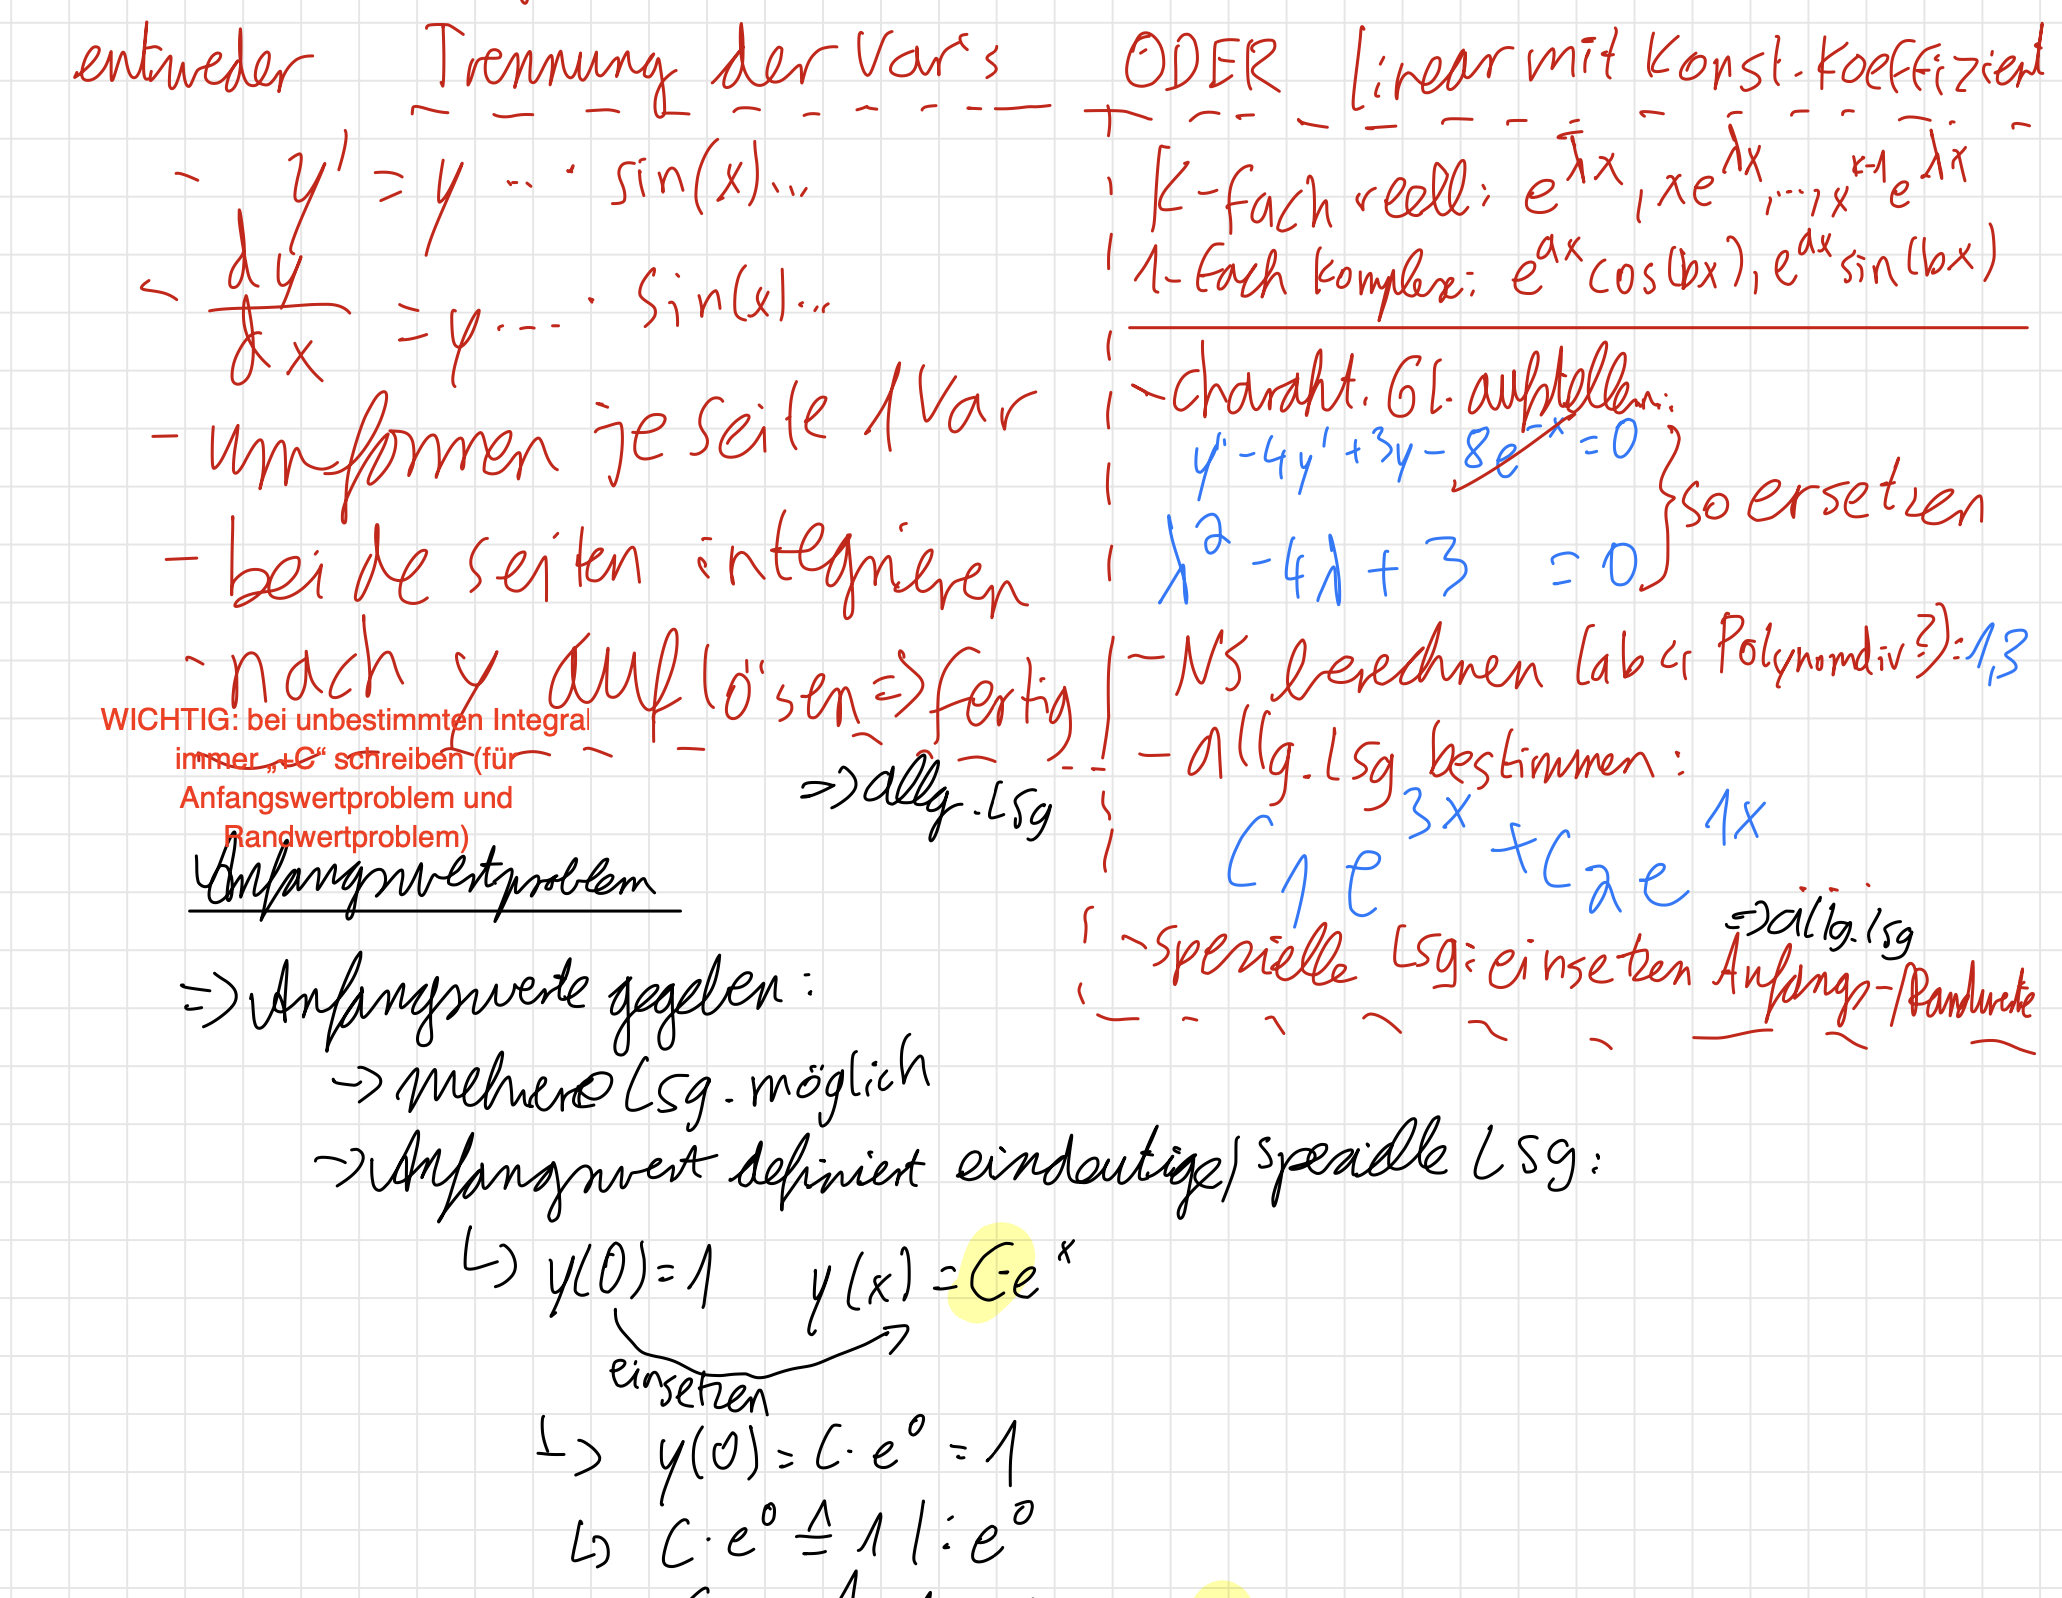 entweder Trennung der Var's ODER linear mit Konst. Koeffizient
- y' = y ... · sin(x)...
- dy/dx = y ... · sin(x)...
- umformen je seite 1 Var
- beide seiten integrieren
- nach y auflösen => fertig
=> allg. Lsg
WICHTIG: bei unbestimmten Integral
immer „+C“ schreiben (für
Anfangswertproblem und
Randwertproblem)
K-fach reell: e^λx, xe^λx, ..., x^k-1 e^λx
1-fach komplex: e^ax cos(bx), e^ax sin(bx)
- charakt. Gl. aufstellen:
y'' - 4y' + 3y - 8e^-x = 0
λ² - 4λ + 3 = 0
} so ersetzen
- NS berechnen (ab 4 Polynomdiv?): 1,3
- allg. Lsg bestimmen:
C1 e^3x + C2 e^1x
=> allg. lsg
- spezielle Lsg: einsetzen Anfangs-/Randwerte
Anfangswertproblem
=> Anfangswerte gegeben:
-> mehrere Lsg. möglich
-> Anfangswert definiert eindeutige/spezielle Lsg:
↳ y(0) = 1 y(x) = C·e^x
einsetzen
↳ y(0) = C · e^0 = 1
↳ C · e^0 ≙ 1 | : e^0